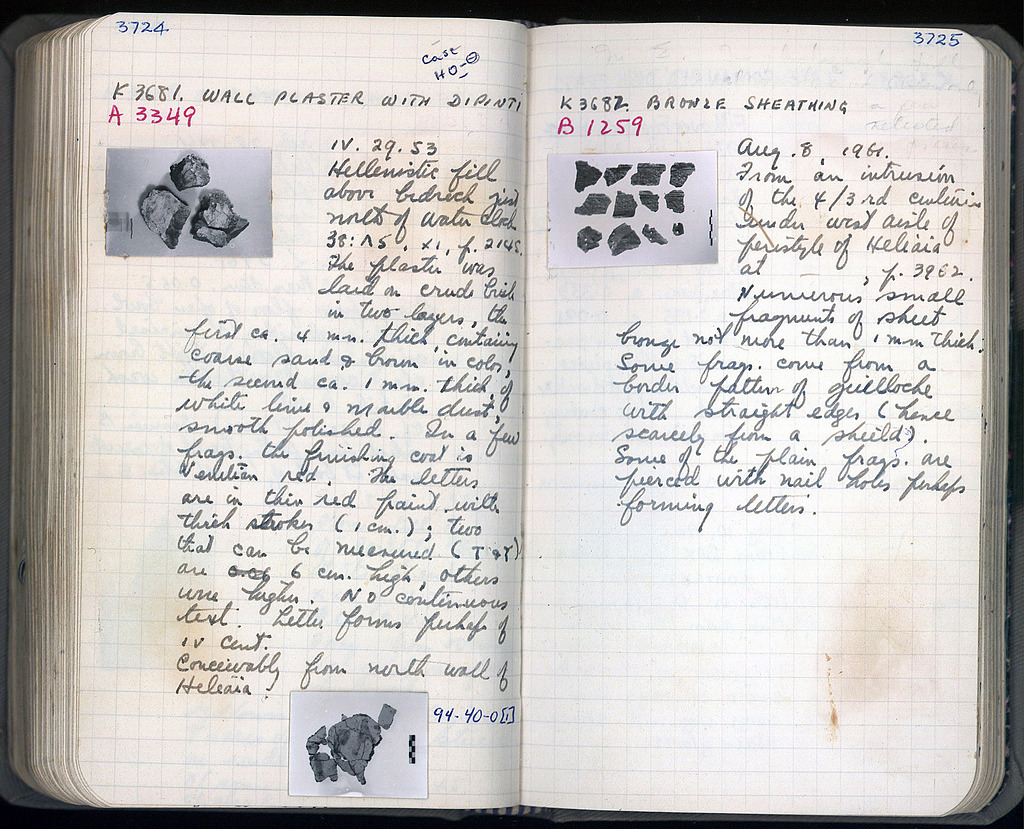 3724
Case
HO-
K 3681. WALL PLASTER WITH DIPINTI
A 3349
IV. 29. 53
Hellenistic fill
above bedrock just
north of water clock
38: ΛΣ, XI, p. 2145.
The plaster was
laid on crude brick
in two layers, the
first ca. 4 mm. thick, containing
coarse sand & brown in color,
the second ca. 1 mm. thick, of
white lime & marble dust,
smooth polished. In a few
frags. the finishing coat is
Venetian red. The letters
are in thin red paint with
thick strokes (1 cm.); two
that can be measured (T & Y)
are 0.06 6 cm. high, others
were higher. No continuous
text. Letter forms perhaps of
IV cent.
Conceivably from north wall of
Heliaia.
94-40-0[1]
3725
K 3682. BRONZE SHEATHING
B 1259
Aug. 8, 1961.
From an intrusion
of the 4/3rd centuries
under west aisle of
peristyle of Heliaia
at , p. 3962.
Numerous small
fragments of sheet
bronze not more than 1 mm thick.
Some frags. come from a
border pattern of guilloche
with straight edges (hence
scarcely from a sheild).
Some of the plain frags. are
pierced with nail holes perhaps
forming letters.